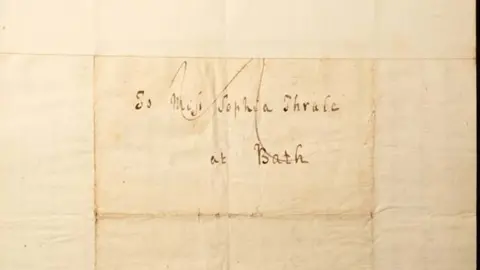 To Miss Sophia Thrale
at Bath